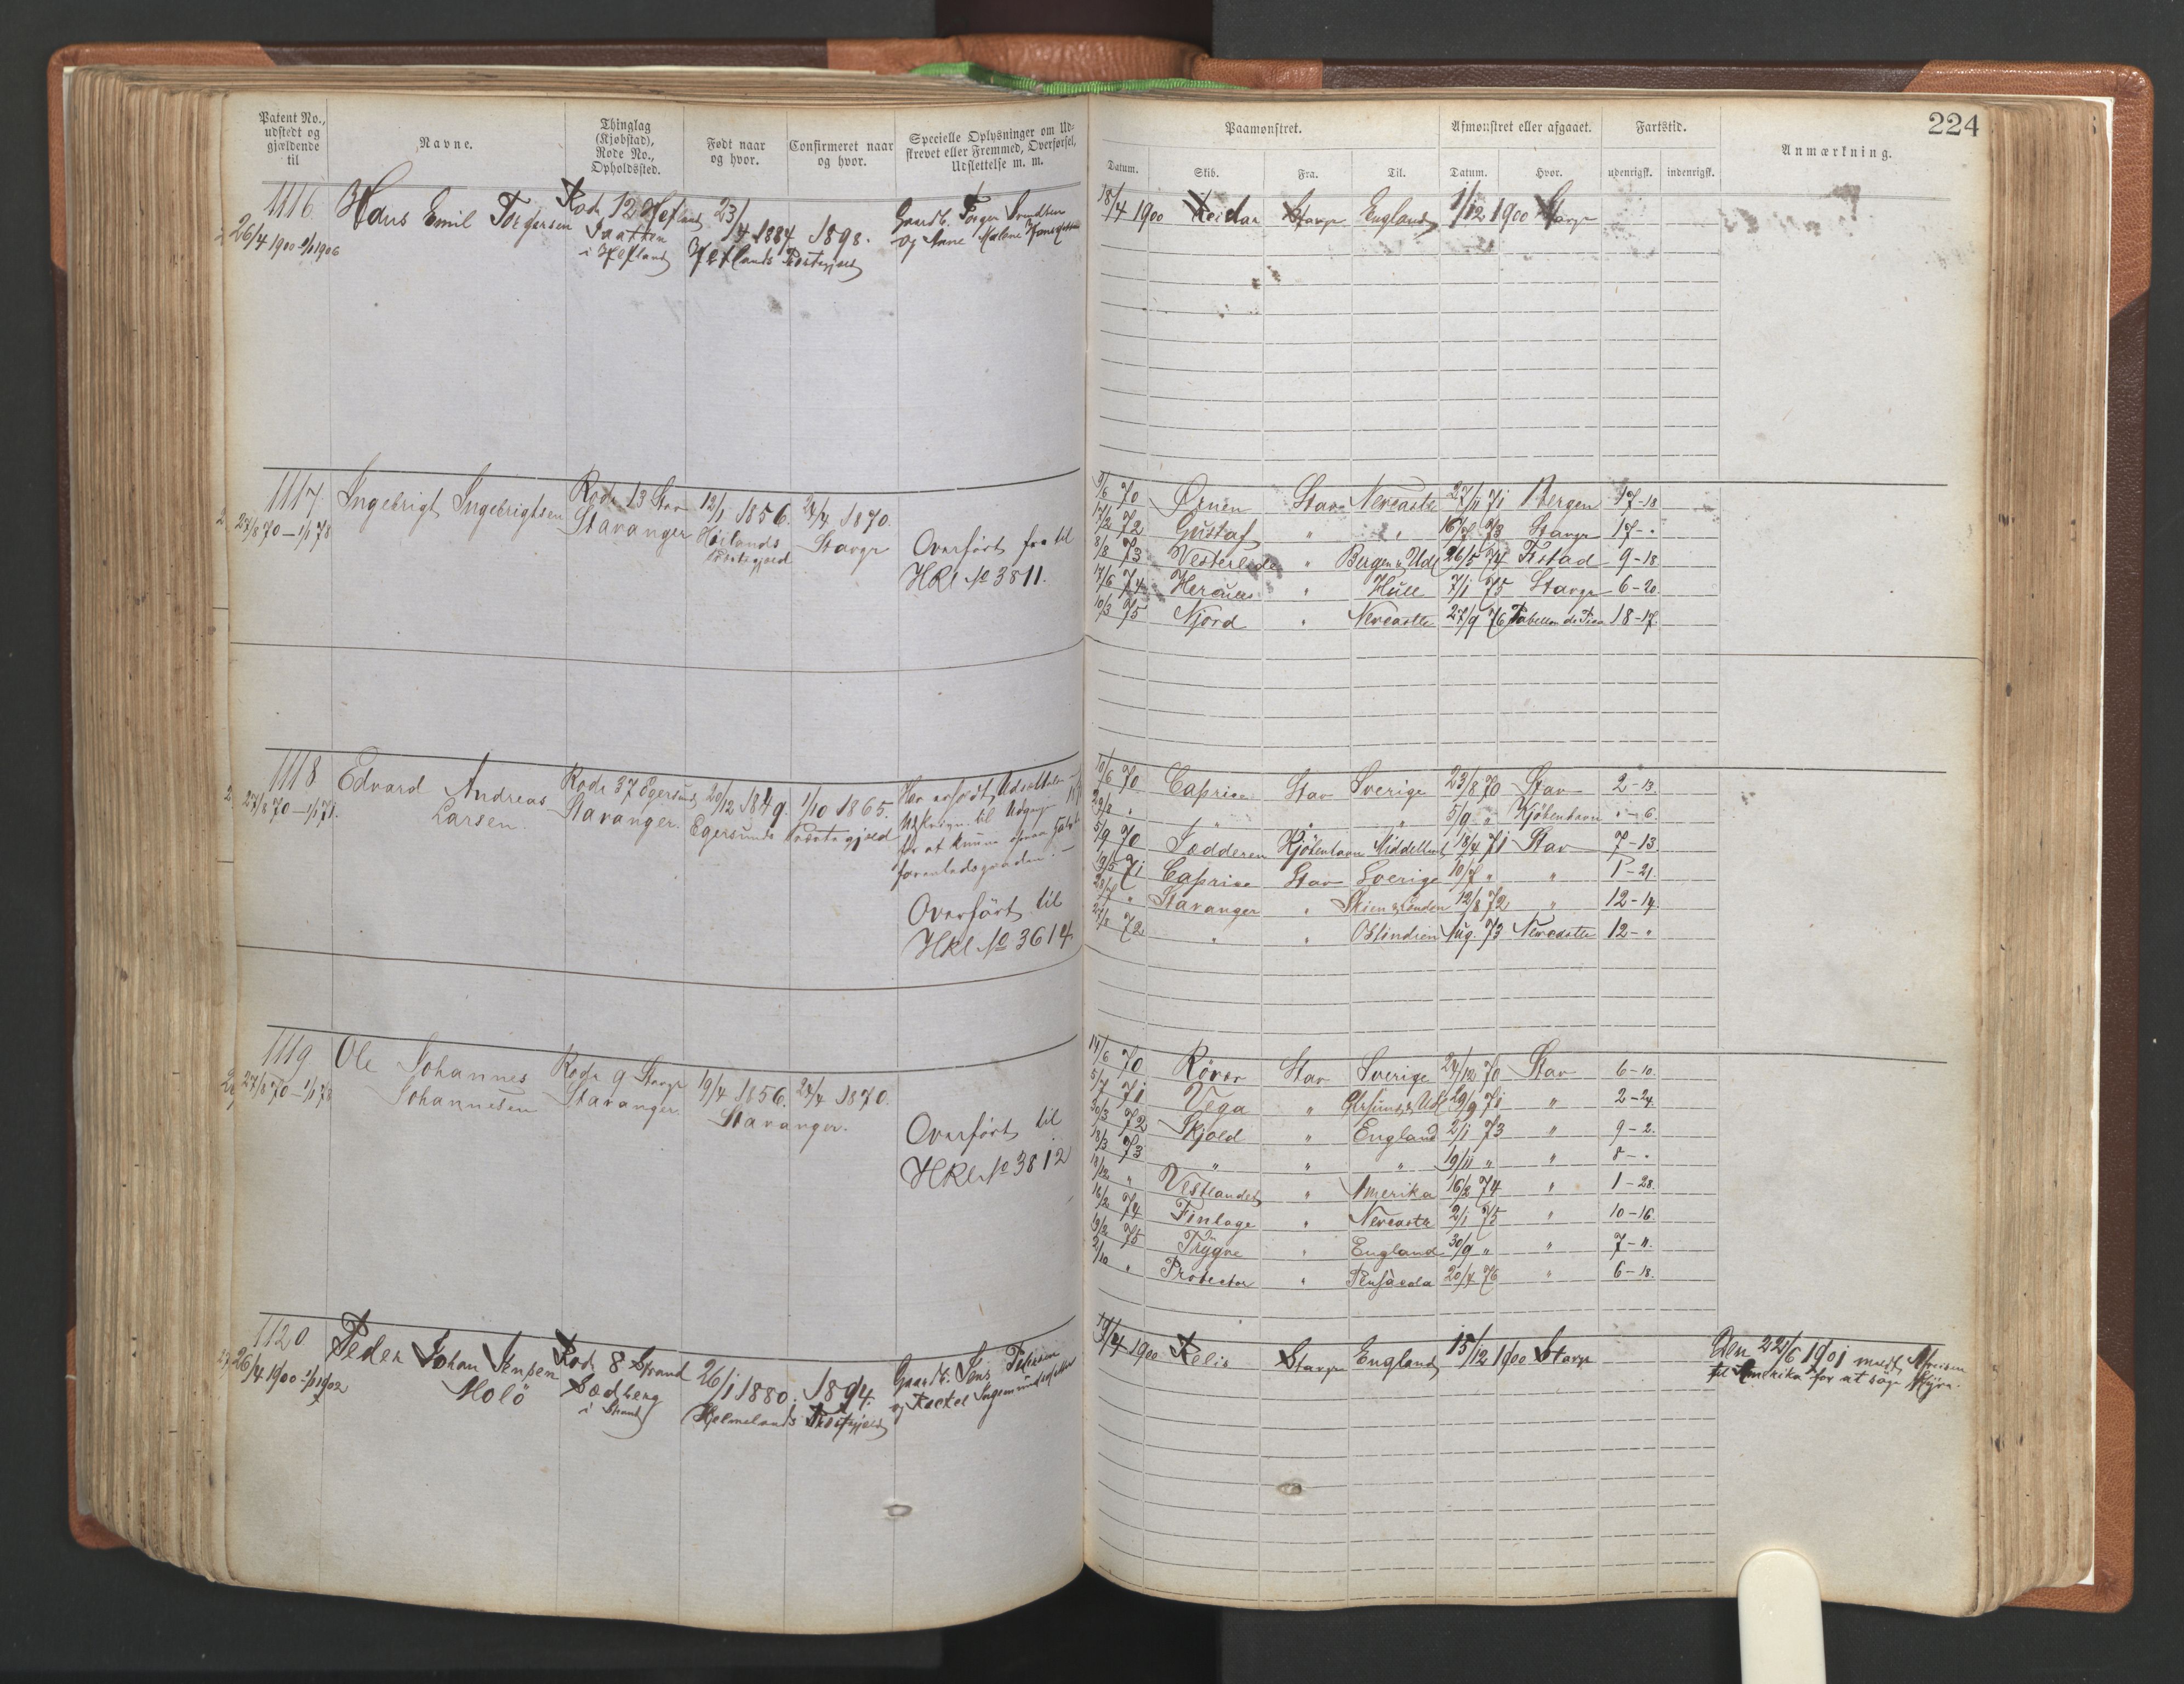 224
Patent No., udstedt og gjældende til
Navne.
Thinglag (Kjøbstad), Rode No., Opholdssted.
Født naar og hvor.
Confirmeret naar og hvor.
Specielle Oplysninger om Udskrevet eller Fremmed, Overførsel, Udslettelse m. m.
Paamønstret.
Afmønstret eller afgaaet.
Fartstid.
Anmærkning.
Datum. Skib. Fra. Til. Datum. Hvor. udenrigsk. indenrigsk.
1116 Hans Emil Torgersen Rode 12 Hetland 23/4 1884 1898. Gaardb. Torger Svendsen
26/4 1900 - 1/1 1906 i Hetland Hetlands Præstegjeld og Anne Malene
18/4 1900 Reidar Stavgr England 1/12 1900 Stavgr
1117 Ingebrigt Ingebrigtsen Rode 13 Stav 12/1 1856. 24/4 1870.
27/8 70 - 1/1 78 Stavanger Høilands Præstegjeld Stavgr
Overført fra til
HKl No 3811.
3/6 70 Ørnen Stav Newcastle 27/11 71 Bergen 17-18
17/2 72 Gustaf " " 16/7 73 Stavgr 17-"
8/8 73 " Bergen & Udl 26/5 74 9-18
17/6 74 Hercules " Hull 7/1 75 Stavgr 6-20
10/3 75 Njord " Newcastle 27/9 76 18-17.
1118 Edvard Andreas Rode 37 Egersund 20/12 1849. 1/10 1865.
27/8 70 - 1/1 71. Larsen. Stavanger. Egersunds Præstegjeld
Har erholdt Udsættelse
til Udgangen
for at kunne
Overført til
HKl No 3614
10/6 70 Caprice Stav Sverige 23/8 70 Stav 2-13.
29/8 " " " " 5/9 " Kjøbenhavn "-6.
5/9 70 Jædderen Kjøbenhavn Middelhavet 18/4 71 Stav 7-13
19/5 71 Caprice Stav Sverige 10/7 " " 1-21.
28/7 " Stavanger " 12/8 72 " 12-14.
27/8 72 " " Ostindien Aug. 73 Newcastle 12-"
1119 Ole Johannes Rode 9 Stavgr 19/4 1856. 24/4 1870.
27/8 70 - 1/1 78 Johannesen Stavanger Stavanger.
Overført til
HKl No 3812
14/6 70 Röver Stav Sverige 24/12 70 Stav 6-10.
5/7 71 Vega " 29/9 71 " 2-24.
30/3 72 Skjold " England 2/1 73 " 9-2.
18/3 73 " " " 19/11 " " 8-"
18/12 " Vestlandet " Amerika 16/2 74 " 1-28.
16/2 74 Finlage " Newcastle 2/1 75 " 10-16.
19/2 75 Trygve " England 30/9 " " 7-11.
2/10 " Protector " Pensacola 20/4 76 " 6-18.
1120 Peder Johan Jensen Rode 8 Strand 26/1 1880. 1894. Gaardb. Jens Pedersen
26/4 1900 - 1/1 1902 Molö i Strand Hjelmelands Præstegjeld og Rachel
19/4 1900 Stavgr England 15/12 1900 Stavgr
Den 22/6 1901 meldt Afreisen
til Amerika for at søge Hyre.